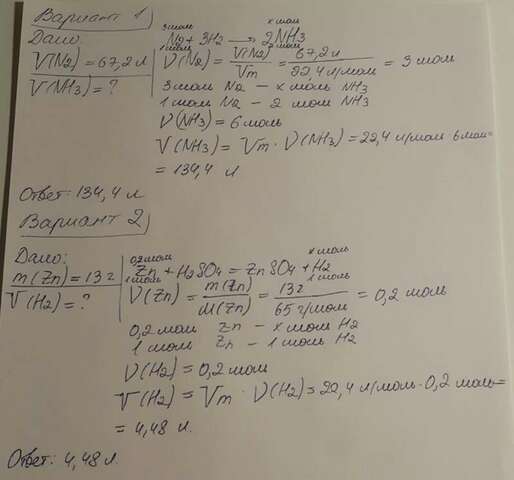 Вариант 1
Дано:
V(N2) = 67,2 л
V(NH3) = ?
3 моль x моль
N2 + 3H2 → 2NH3
1 моль 2 моль
ν(N2) = V(N2)/Vm = 67,2 л/22,4 л/моль = 3 моль
3 моль N2 – x моль NH3
1 моль N2 – 2 моль NH3
ν(NH3) = 6 моль
V(NH3) = Vm · ν(NH3) = 22,4 л/моль 6 моль =
= 134,4 л
Ответ: 134,4 л
Вариант 2
Дано:
m(Zn) = 13 г
V(H2) = ?
0,2 моль x моль
Zn + H2SO4 = ZnSO4 + H2
1 моль 1 моль
ν(Zn) = m(Zn)/M(Zn) = 13 г/65 г/моль = 0,2 моль
0,2 моль Zn – x моль H2
1 моль Zn – 1 моль H2
ν(H2) = 0,2 моль
V(H2) = Vm · ν(H2) = 22,4 л/моль · 0,2 моль =
= 4,48 л.
Ответ: 4,48 л.